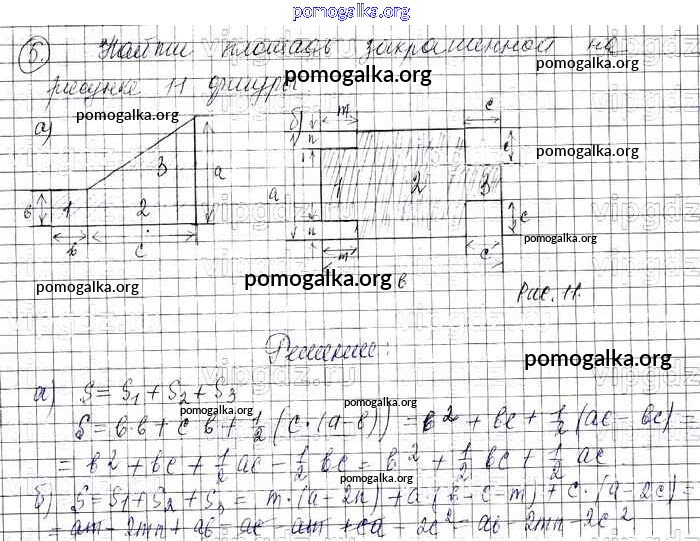 pomogalka.org
5. Найти площадь закрашенной на
рисунке 11 фигуры.
pomogalka.org
pomogalka.org
pomogalka.org
pomogalka.org
а)
б)
m
n
c
c
3
a
a
в
1
2
1
2
3
в
c
n
m
c
2c
в
pomogalka.org
pomogalka.org
pomogalka.org
pomogalka.org
Рис. 11.
Решение:
pomogalka.org
а) S = S₁ + S₂ + S₃
pomogalka.org
pomogalka.org
S = в·в + c·в + 1/2 (c·(a-в)) = в² + вc + 1/2 (ac - вc) =
= в² + вc + 1/2 ac - 1/2 вc = в² + 1/2 вc + 1/2 ac
pomogalka.org
б) S = S₁ + S₂ + S₃ = m·(a-2n) + a·(в-c-m) + c·(a-2c) =
= am - 2mn + aв - ac - am + ca - 2c² = aв - 2mn - 2c²
vipgdz.ru